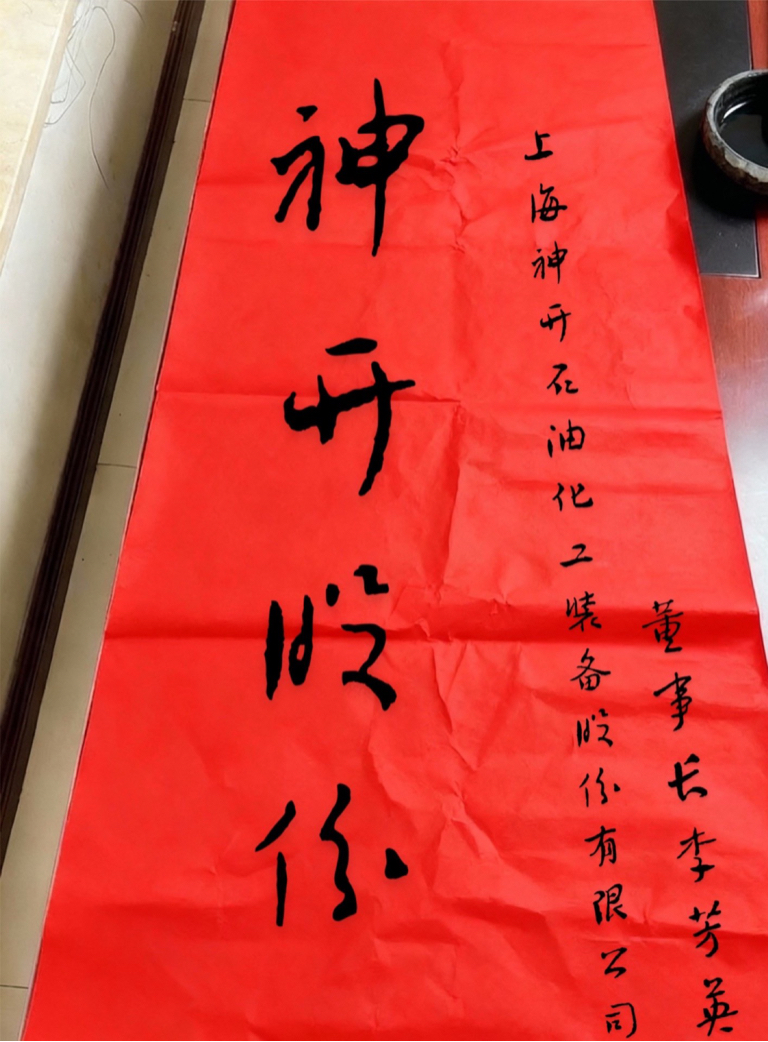 神开股份
上海神开石油化工装备股份有限公司
董事长李芳英